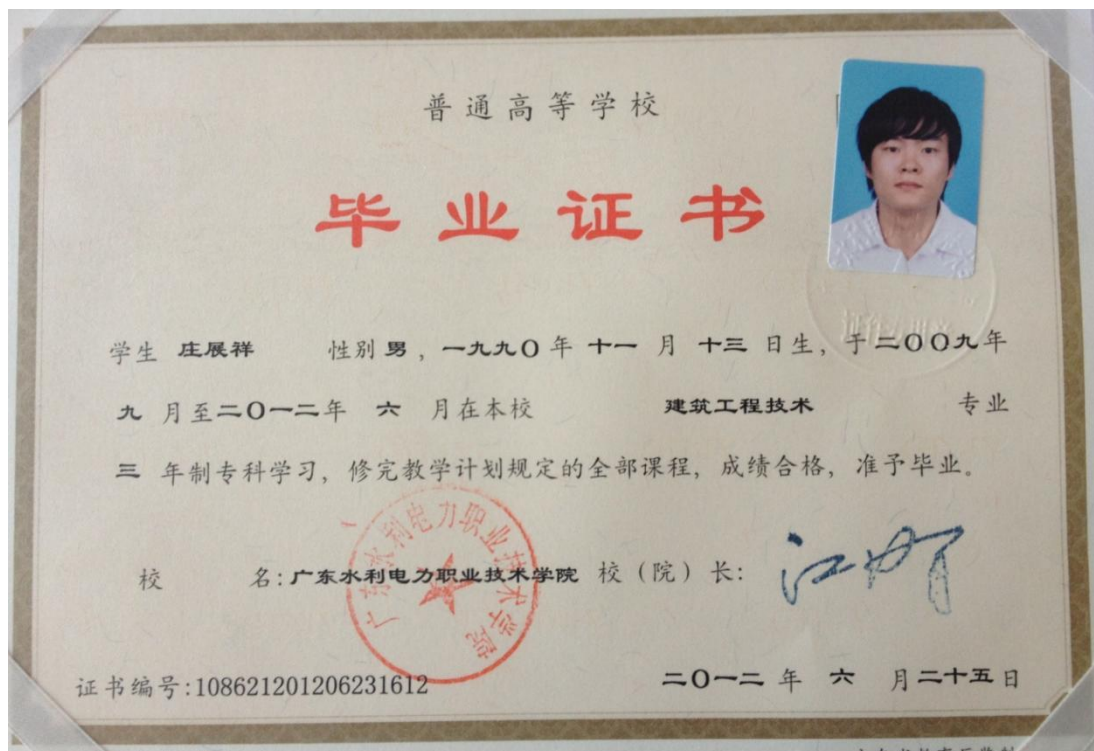 普通高等学校
毕业证书
学生 庄展祥 性别 男，一九九〇年 十一 月 十三 日生，于二〇〇九年
九 月至二〇一二年 六 月在本校 建筑工程技术 专业
三 年制专科学习，修完教学计划规定的全部课程，成绩合格，准予毕业。
广东水利电力职业技术学院
校 名：广东水利电力职业技术学院 校（院）长：
证书编号：108621201206231612 二〇一二年 六 月二十五日